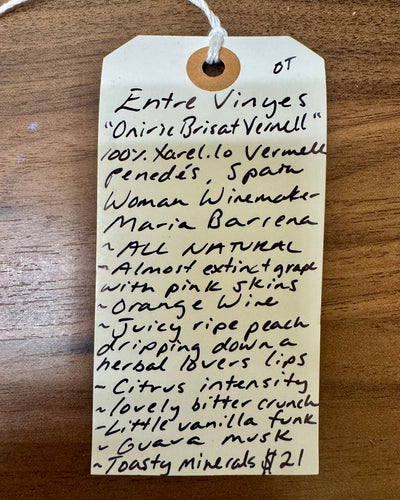 OT
Entre Vinyes
"Oniric Brisat Vermell"
100% Xarel.lo Vermell
Penedés, Spain
Woman Winemaker
Maria Barrena
~ ALL NATURAL
~ Almost extinct grape
with pink skins
~ Orange Wine
~ Juicy ripe peach
dripping down a
herbal lovers lips
~ Citrus intensity
~ lovely bitter crunch
~ Little vanilla funk
~ Guava musk
~ Toasty Minerals $21